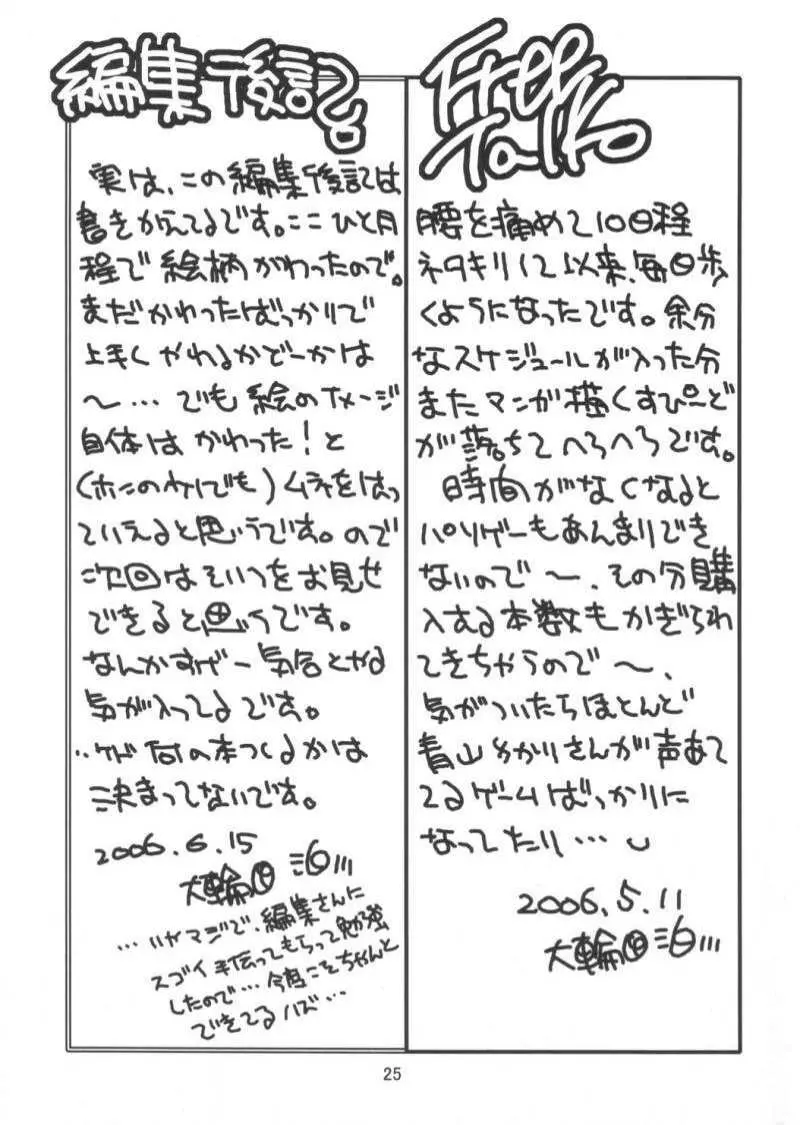 Free
Talk
腰を痛めて10日程
ネタキリして以来、毎日歩
くようになったです。余分
なスケジュールが入った分
またマンが描くすぴーど
が落ちてへろへろです。
時間がなくなると
パソゲーもあんまりでき
ないので〜、その分購
入する本数もかぎられ
てきちゃうので〜、
気がついたらほとんど
青山ゆかりさんが声あて
てるゲームばっかりに
なってたり…
2006.5.11
編集後記
実は、この編集後記は
書きかえてるです。ここひと月
程で絵柄がわったので。
まだかわったばっかりで
上手くやれるかどーかは
〜…でも絵のイメージ
自体はかわった!と
(ホンのわずかでも)ムネをはっ
ていえると思うです。ので
次回はそいつをお見せ
できると思うです。
なんかすげー気合とかる
気が入ってるです。
..ケド何の本つくるかは
決まってないです。
2006.6.15
…いやマジで、編集さんに
スゴイ手伝ってもらって勉強
したので…今度こそちゃんと
できてるハズ…
25